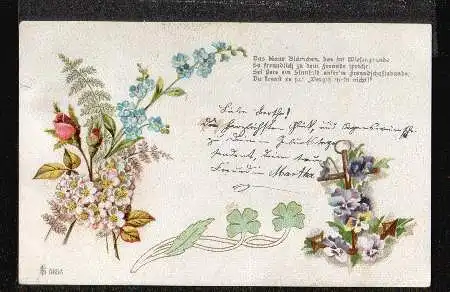 Das blaue Blümchen, das im Wiesengrunde
So freundlich zu dem Freunde spricht:
Sei stets ein Sinnbild unser'm Freundschaftsbunde,
Du kennst es ja: „Vergiß m-in nicht!"
Liebe Berthe!
Die herzlichsten Glück, und Segenswünsche
zu Deinem Geburtstage
sendet, Deine treue
Freundin Martha
5055